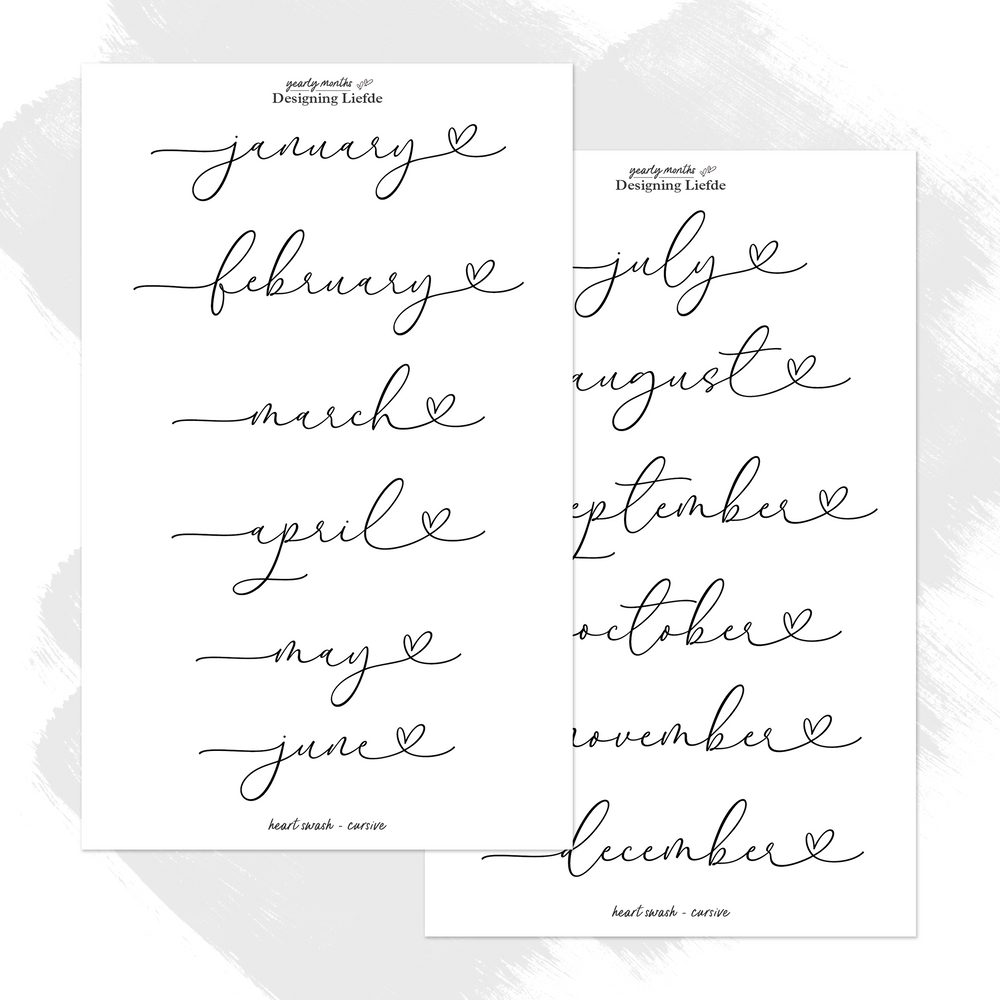 yearly months
Designing Liefde
january
february
march
april
may
june
heart swash - cursive
yearly months
Designing Liefde
july
august
eptember
october
november
december
heart swash - cursive